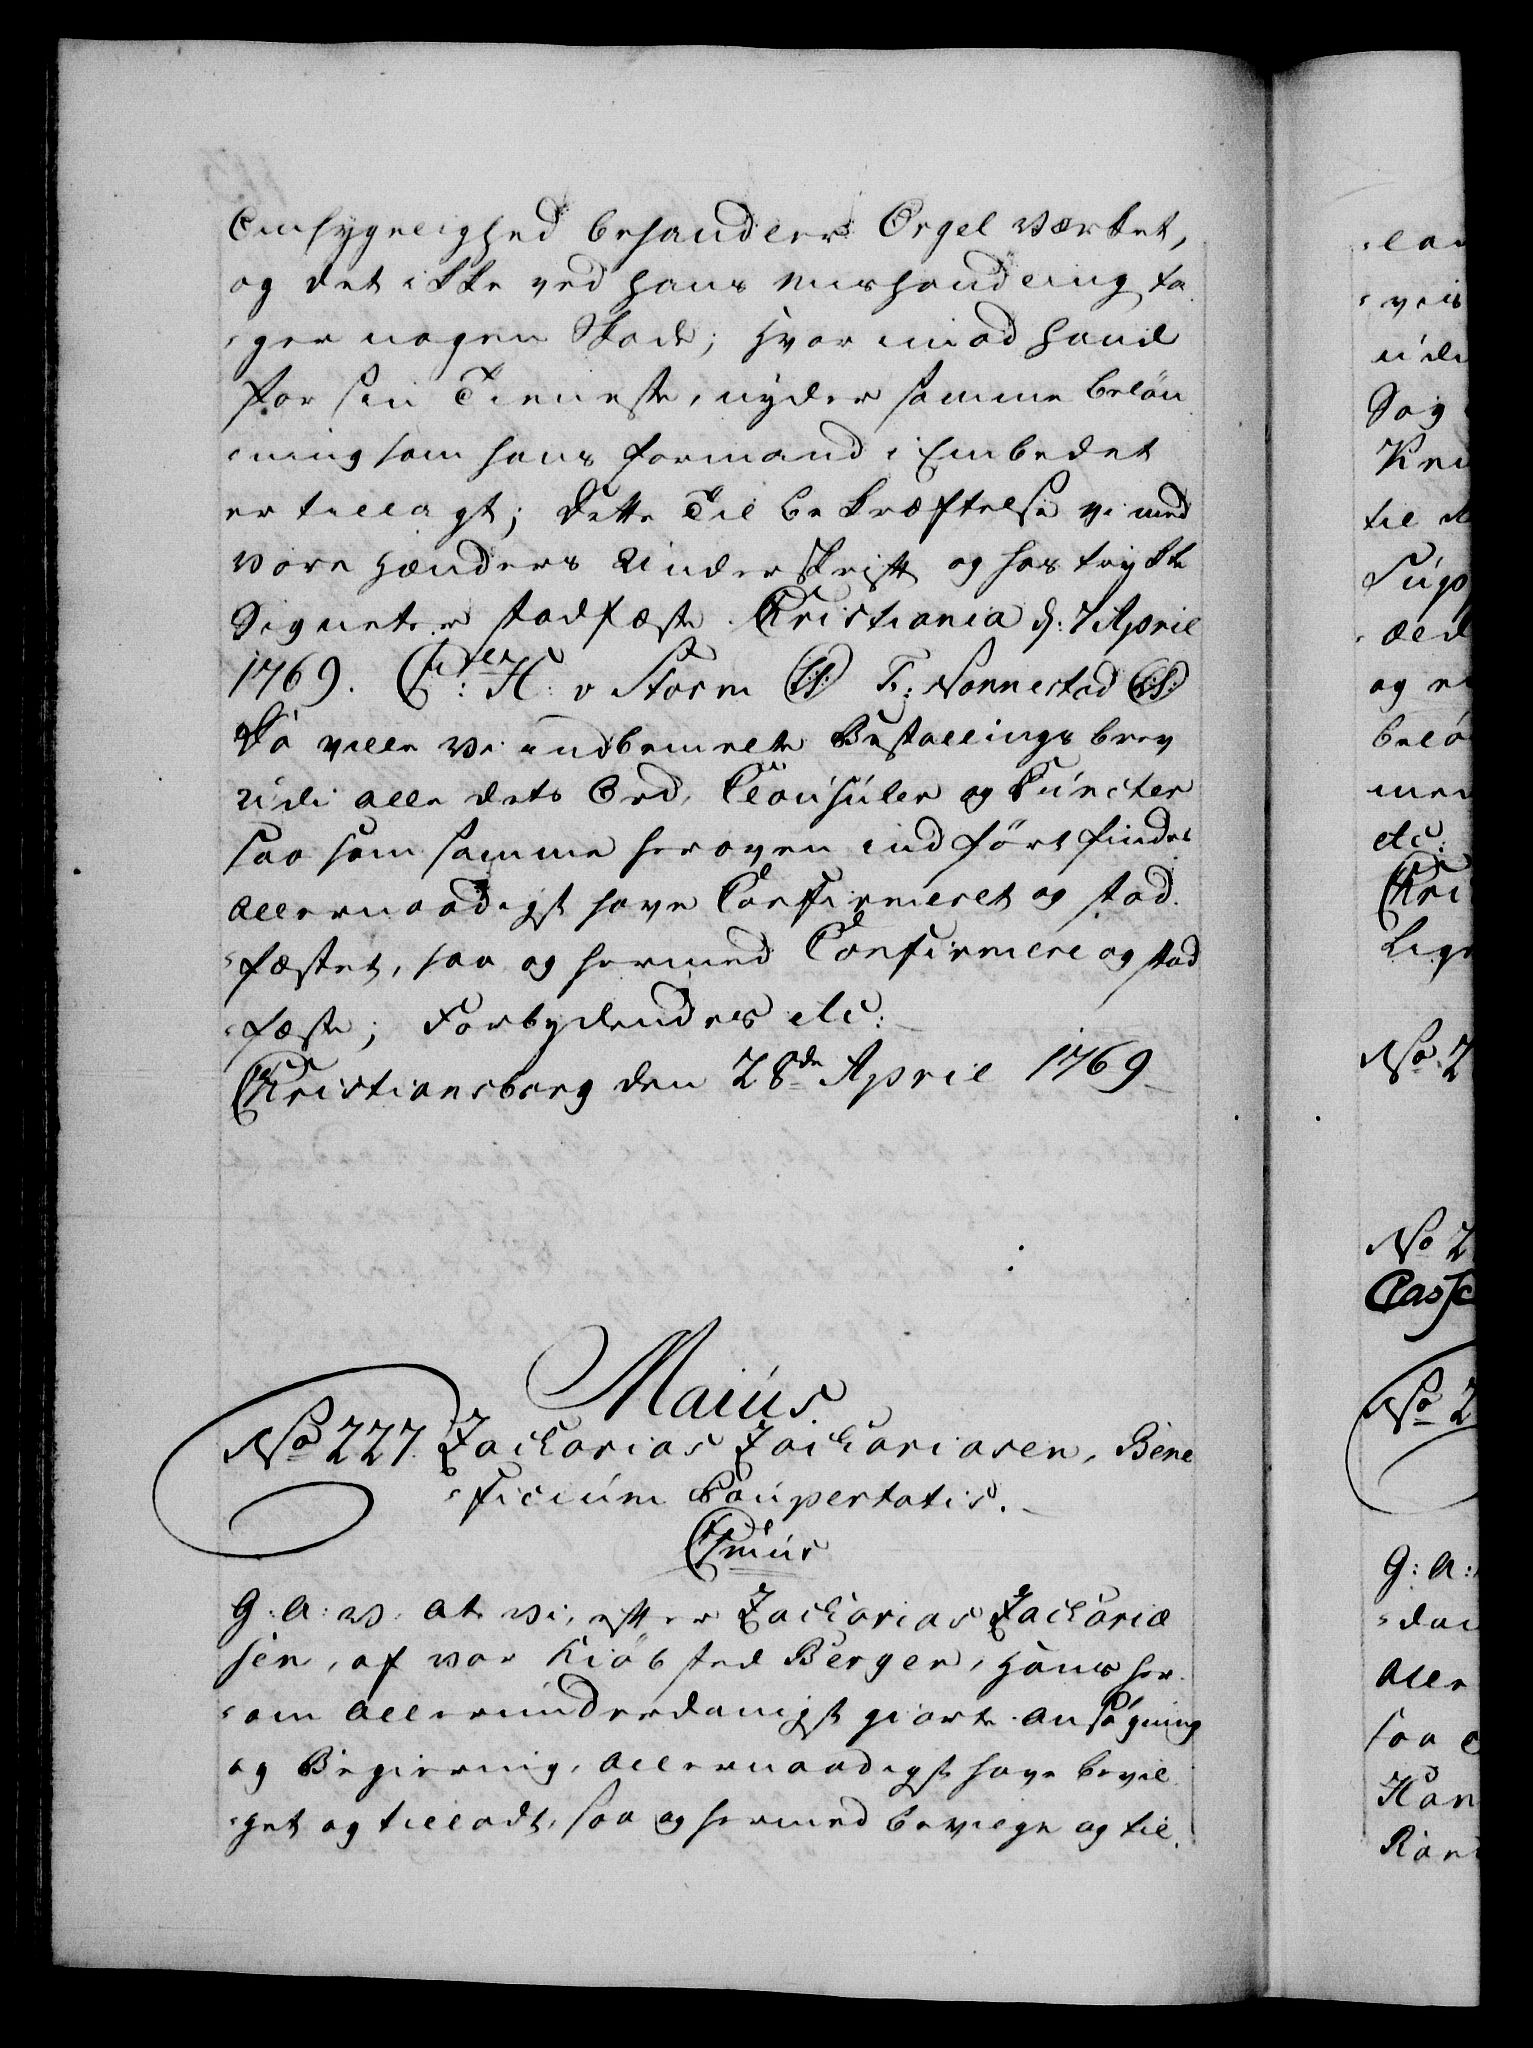 Omhyggelighed behandler Orgel værket,
og det ikke ved hans mishandling ta
-ger nogen Skade; hvor imod hand
for sin Tieneste, nyder samme belön
-ning som hans formand i Embedet
er tillagt; dette Til bekræftelse vi med
vore Hænders Underskrift og hos trykte
Signeter stadfæste. Christiania d: 7 April
1769. C: H: v Storm (LS) F: Nannestad (LS)
Da ville vi indbemelte Bestallings brev
udi alle dets Ord, Clausuler og Puncter
saa som samme heroven indfört findes
allernaadigst have Confirmeret og stad
-fæstet, saa og hermed Confirmere og stad
-fæste; Forbydendes etc:
Christiansborg den 28de April 1769
Maius
No 227. Zacharias Zachariasen, Bene
-ficium Paupertatis.
Cmus
G: A: V: at vi, efter Zacharias Zacharia
sen, af vor Kiöbsted Bergen, hans her
-om allerunderdanigst giorte Ansögning
og Begiering, allernaadigst have bevil
-get og tilladt, saa og hermed bevilge og til